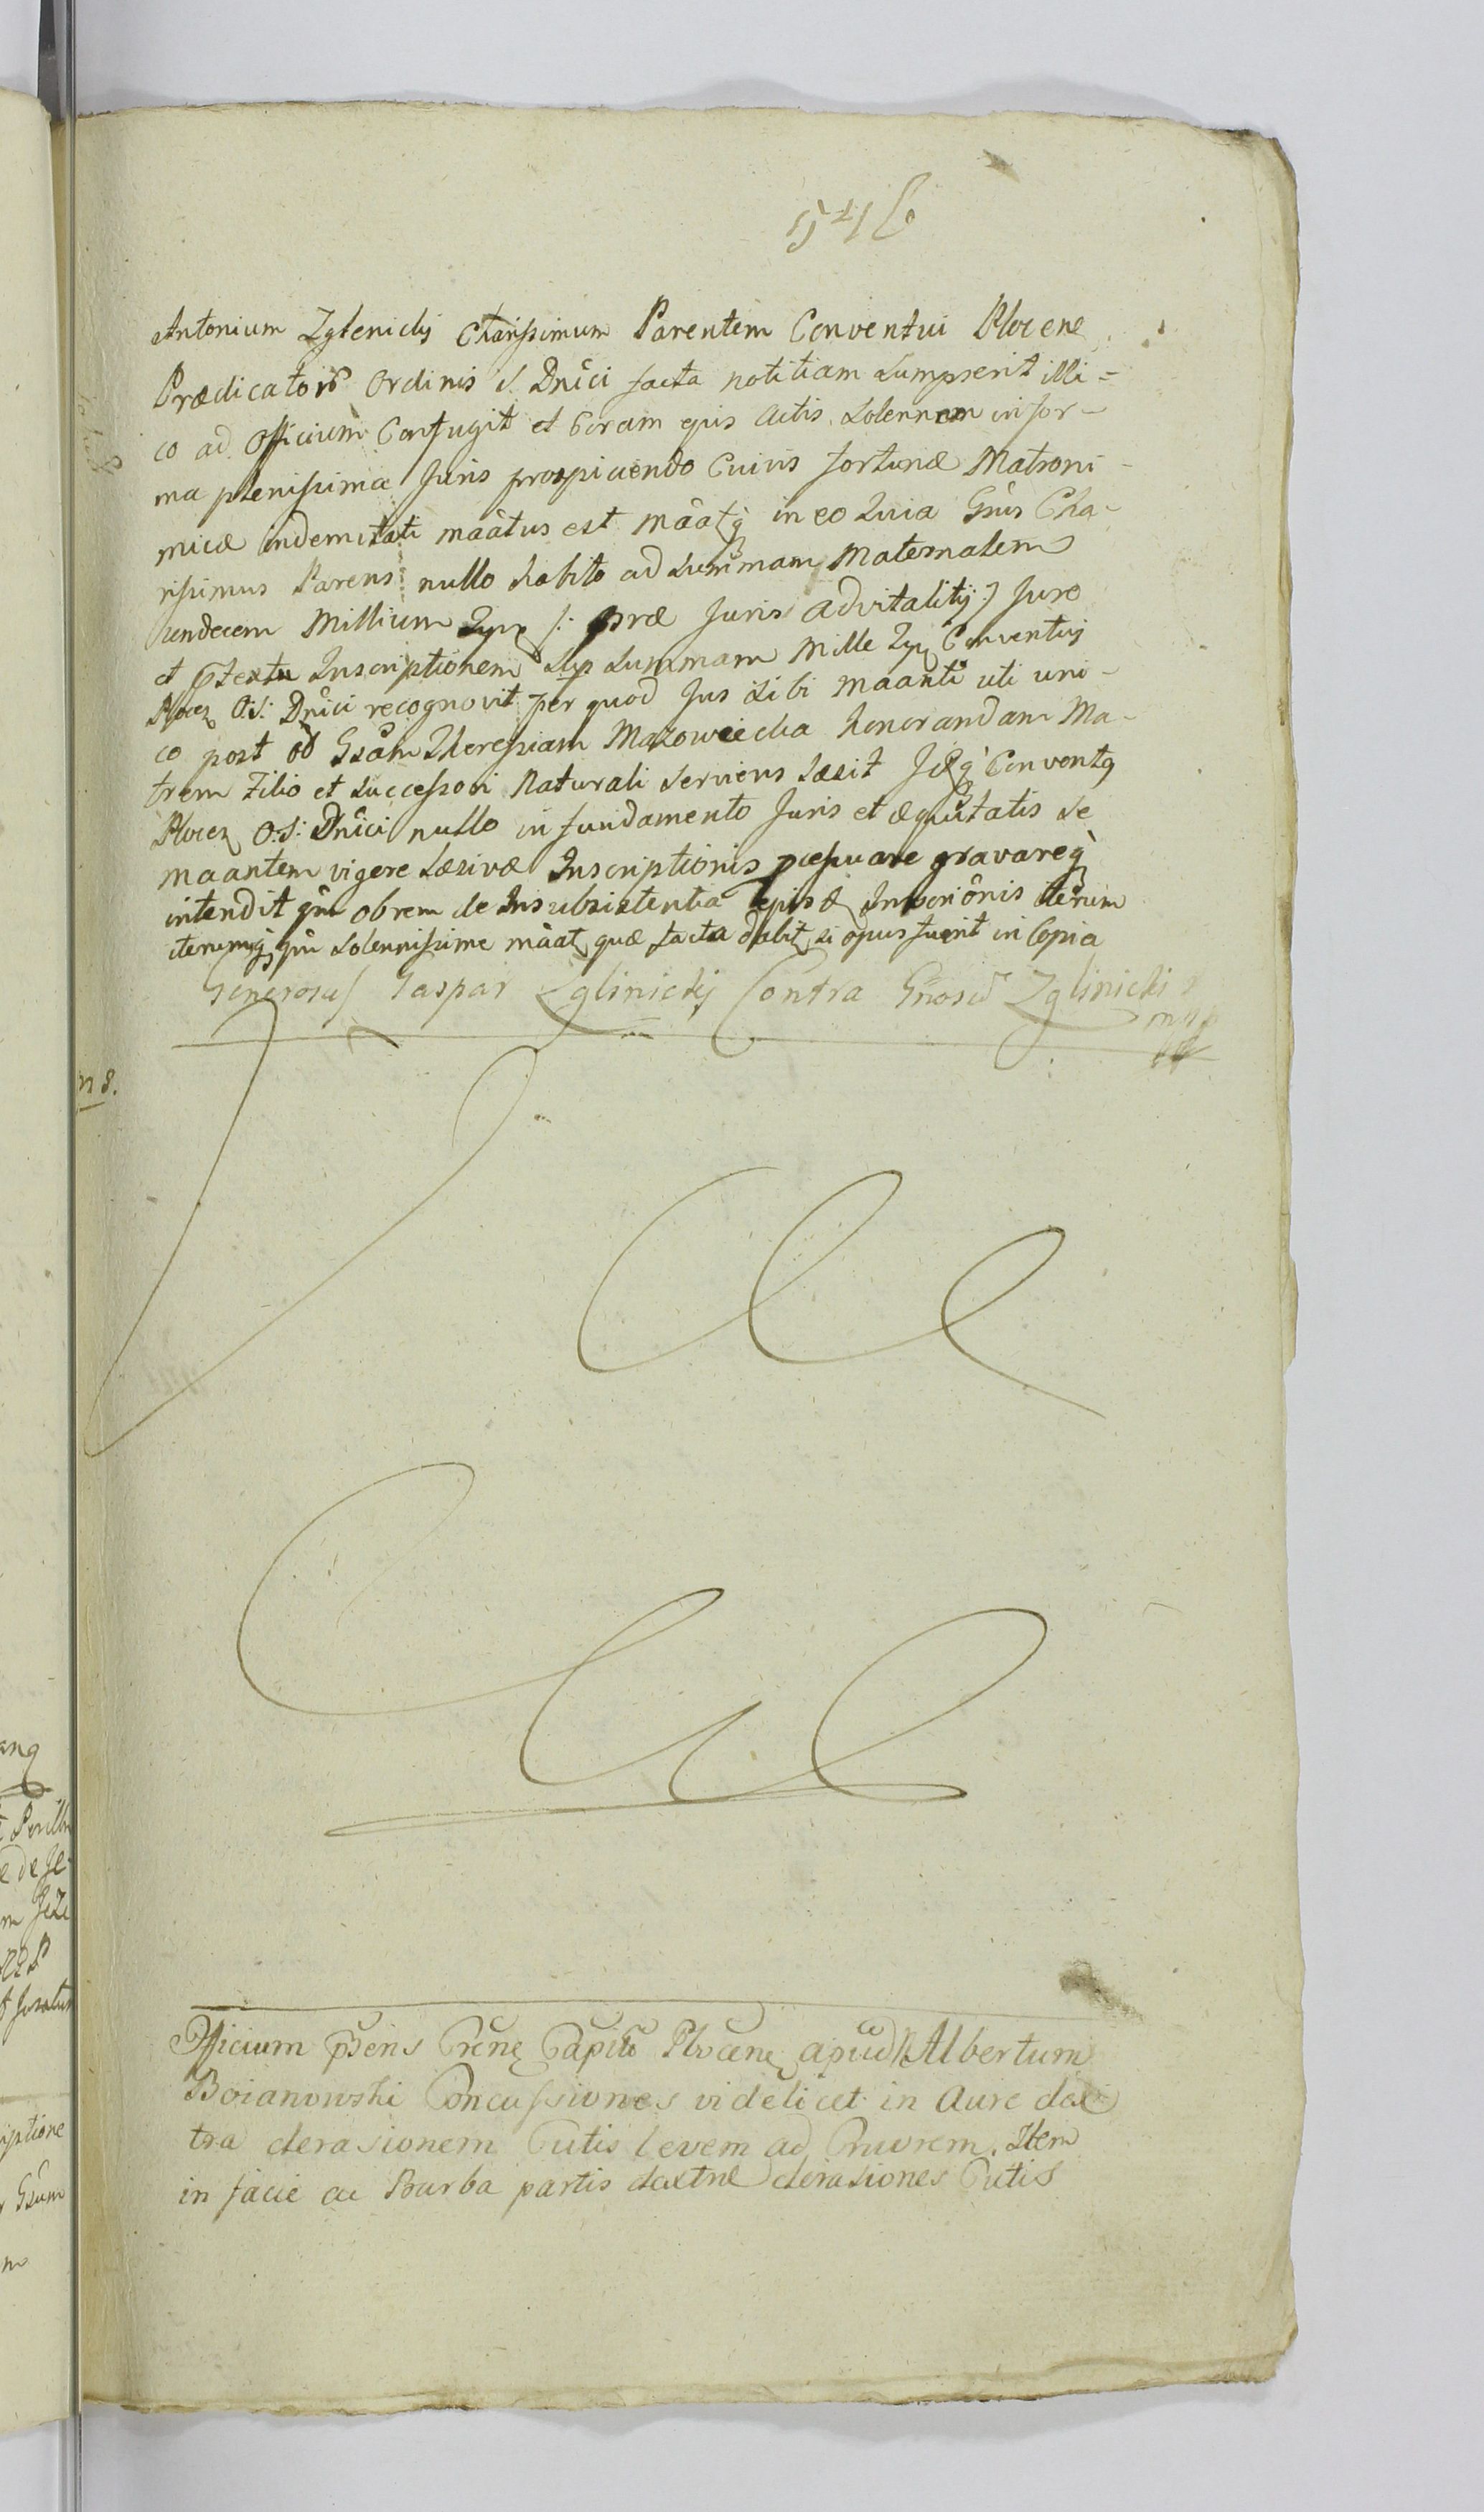 546
Antonium Zgleniclij Charissimum Parentem Conventui Plocene
Prædicatorũ Ordinis S. Dnĩci facta notitiam sumpserit illi=
co ad Officium Confugit et Coram ejus Actis solennem in for-
ma plenissima Juris prospiciendo Cuivis fortunæ Matroni-
micæ indemnitati mãatus est mãatq̃ in eo Quia Gñus Cha-
rissimus Parens nullo habito ad summam Maternalem
undecem Millium /: præ Juris advitalitij :/ Jure
et Inscriptionem sup summam Mille Conventuj
Plocen O: S: Dnĩci recognovit per quod Jus sibi maanti uti uni-
co post Theressiam Mazowiecka honorandam Ma-
trem Filio et Successori Naturali serviens Læsit Conventq
Plocen O: S: Dnĩci nullo in fundamento Juris et æquitatis se
maantem vigere Læsivæ Inscriptionis gravareq̃
intendit obrem de Insubsistentia iterum
iterumq̃ solennissime mãat quæ facta dabit si opus fuerit in Copia
Generosus Gaspar Zglinickij Contra Gñosũ Zglinicki
mpp
n 8.
Officium Capitũ Plocene apud N Albertum
Boianowski Concussiones videlicet in Aure dex
tra derasionem Cutis levem ad Cruorem. Item
in facie ac Barba partis dextræ derasiones Cutis